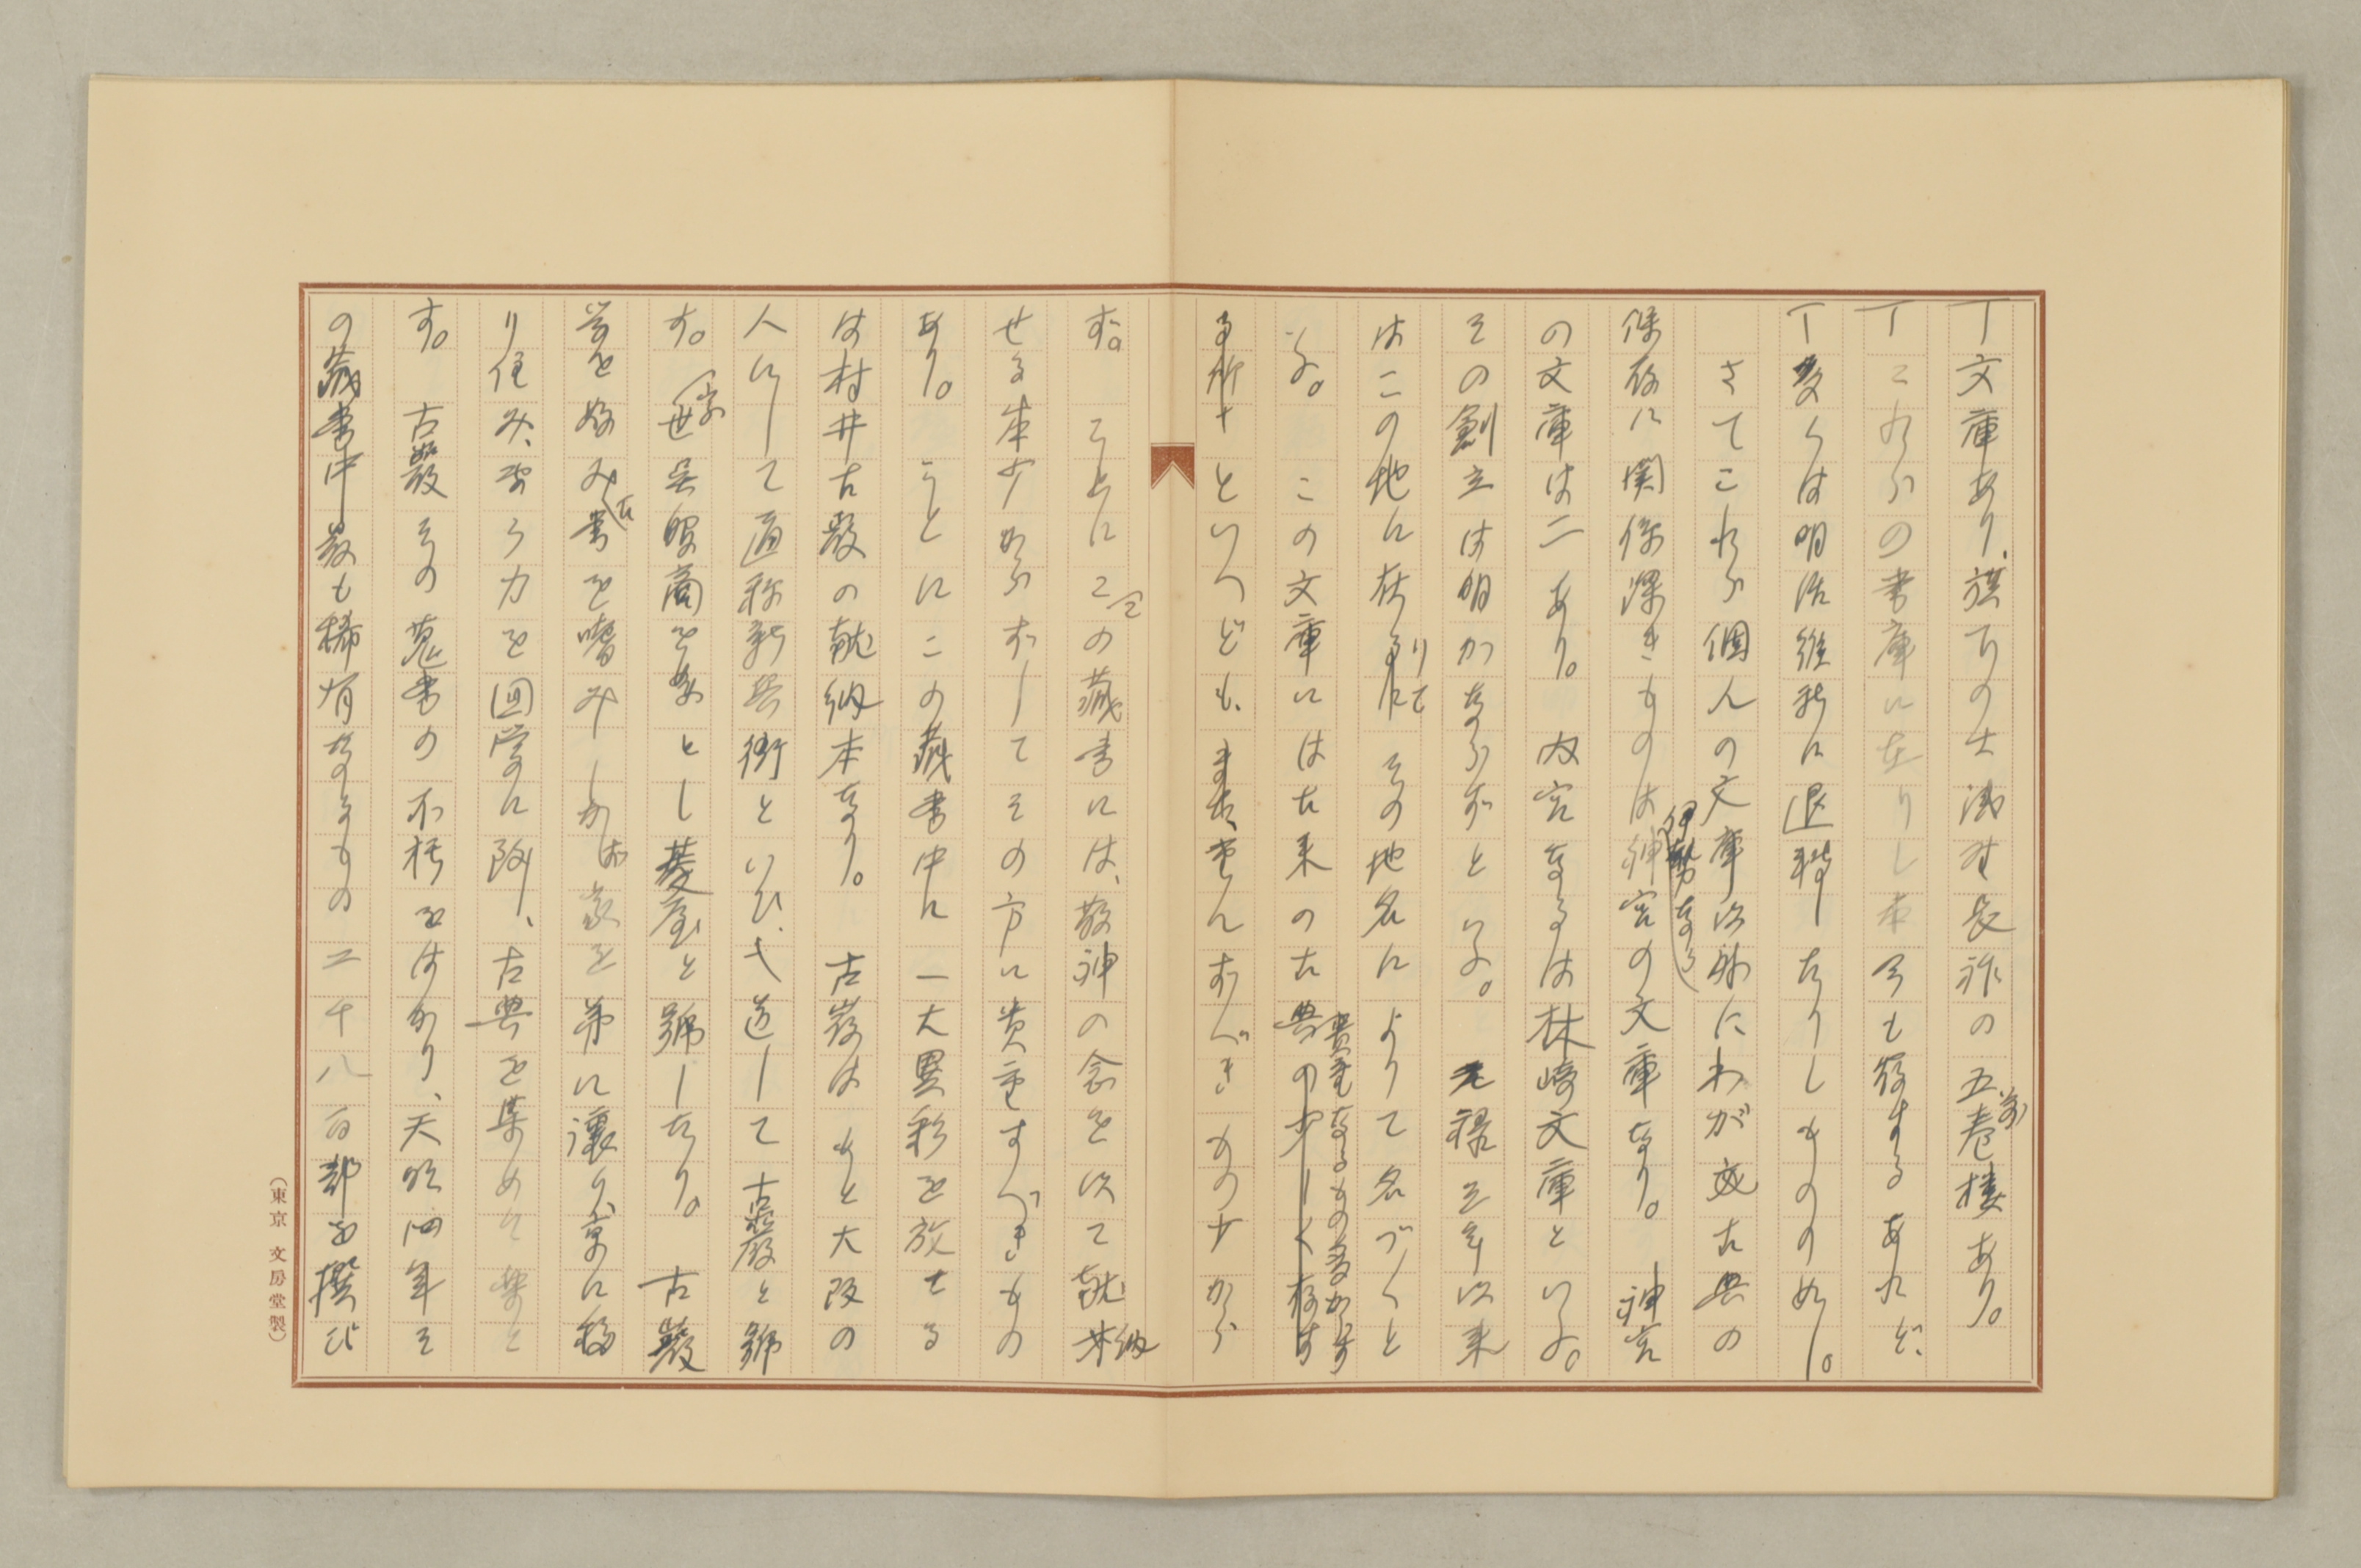 文庫あり、旗下の士浅野長祚の五万巻楼あり。
これらの書庫に在りし本今も存するあれど、
多くは明治維新に退轉したりしもののめし。
さてこれら個人の文庫以外にわが古典の
保存に関係深きものは伊勢なる神宮の文庫なり。神宮
の文庫は二あり。内宮なるは林崎文庫といふ。
その創立は明かならずといふ。元禄三年以来
はこの地に在りて その地名によりて名づくと
いふ。この文庫には古来の古典の貴重なるもの多からず
といへども、またなしとすべきもの少から
ず。ことにこの藏書には、敬神の念を以て献納
せる本少からずしてその方に貴重すべきもの
あり。ことにこの藏書中に一大異彩を放てる
は村井古巌の献納本なり。古巌はもと大阪の
人にして通称新兵衛といひ、弌道して古巌と號
す。家世呉服商を業とし菱屋と號したり。古巌
学を好み古書を嗜みしかば家を弟に讓り、京に移
り住み、専ら力を国学に致し、古典を集めて楽と
す。古巌その蒐書の不朽をはかり、天明四年そ
の藏書中最も稀有なるもの二千八百部を撰び
(東京 文房堂製)